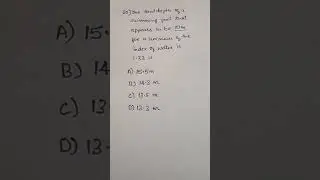 The real depth of a
swimming pool that
appears to be
for a swimmer if the
index of water is
1.33 is
A) 15.
B) 14.
C) 13.
D) 13.
A) 15.5 m
B) 14.3 m
C) 13.5 m
D) 13.3 m